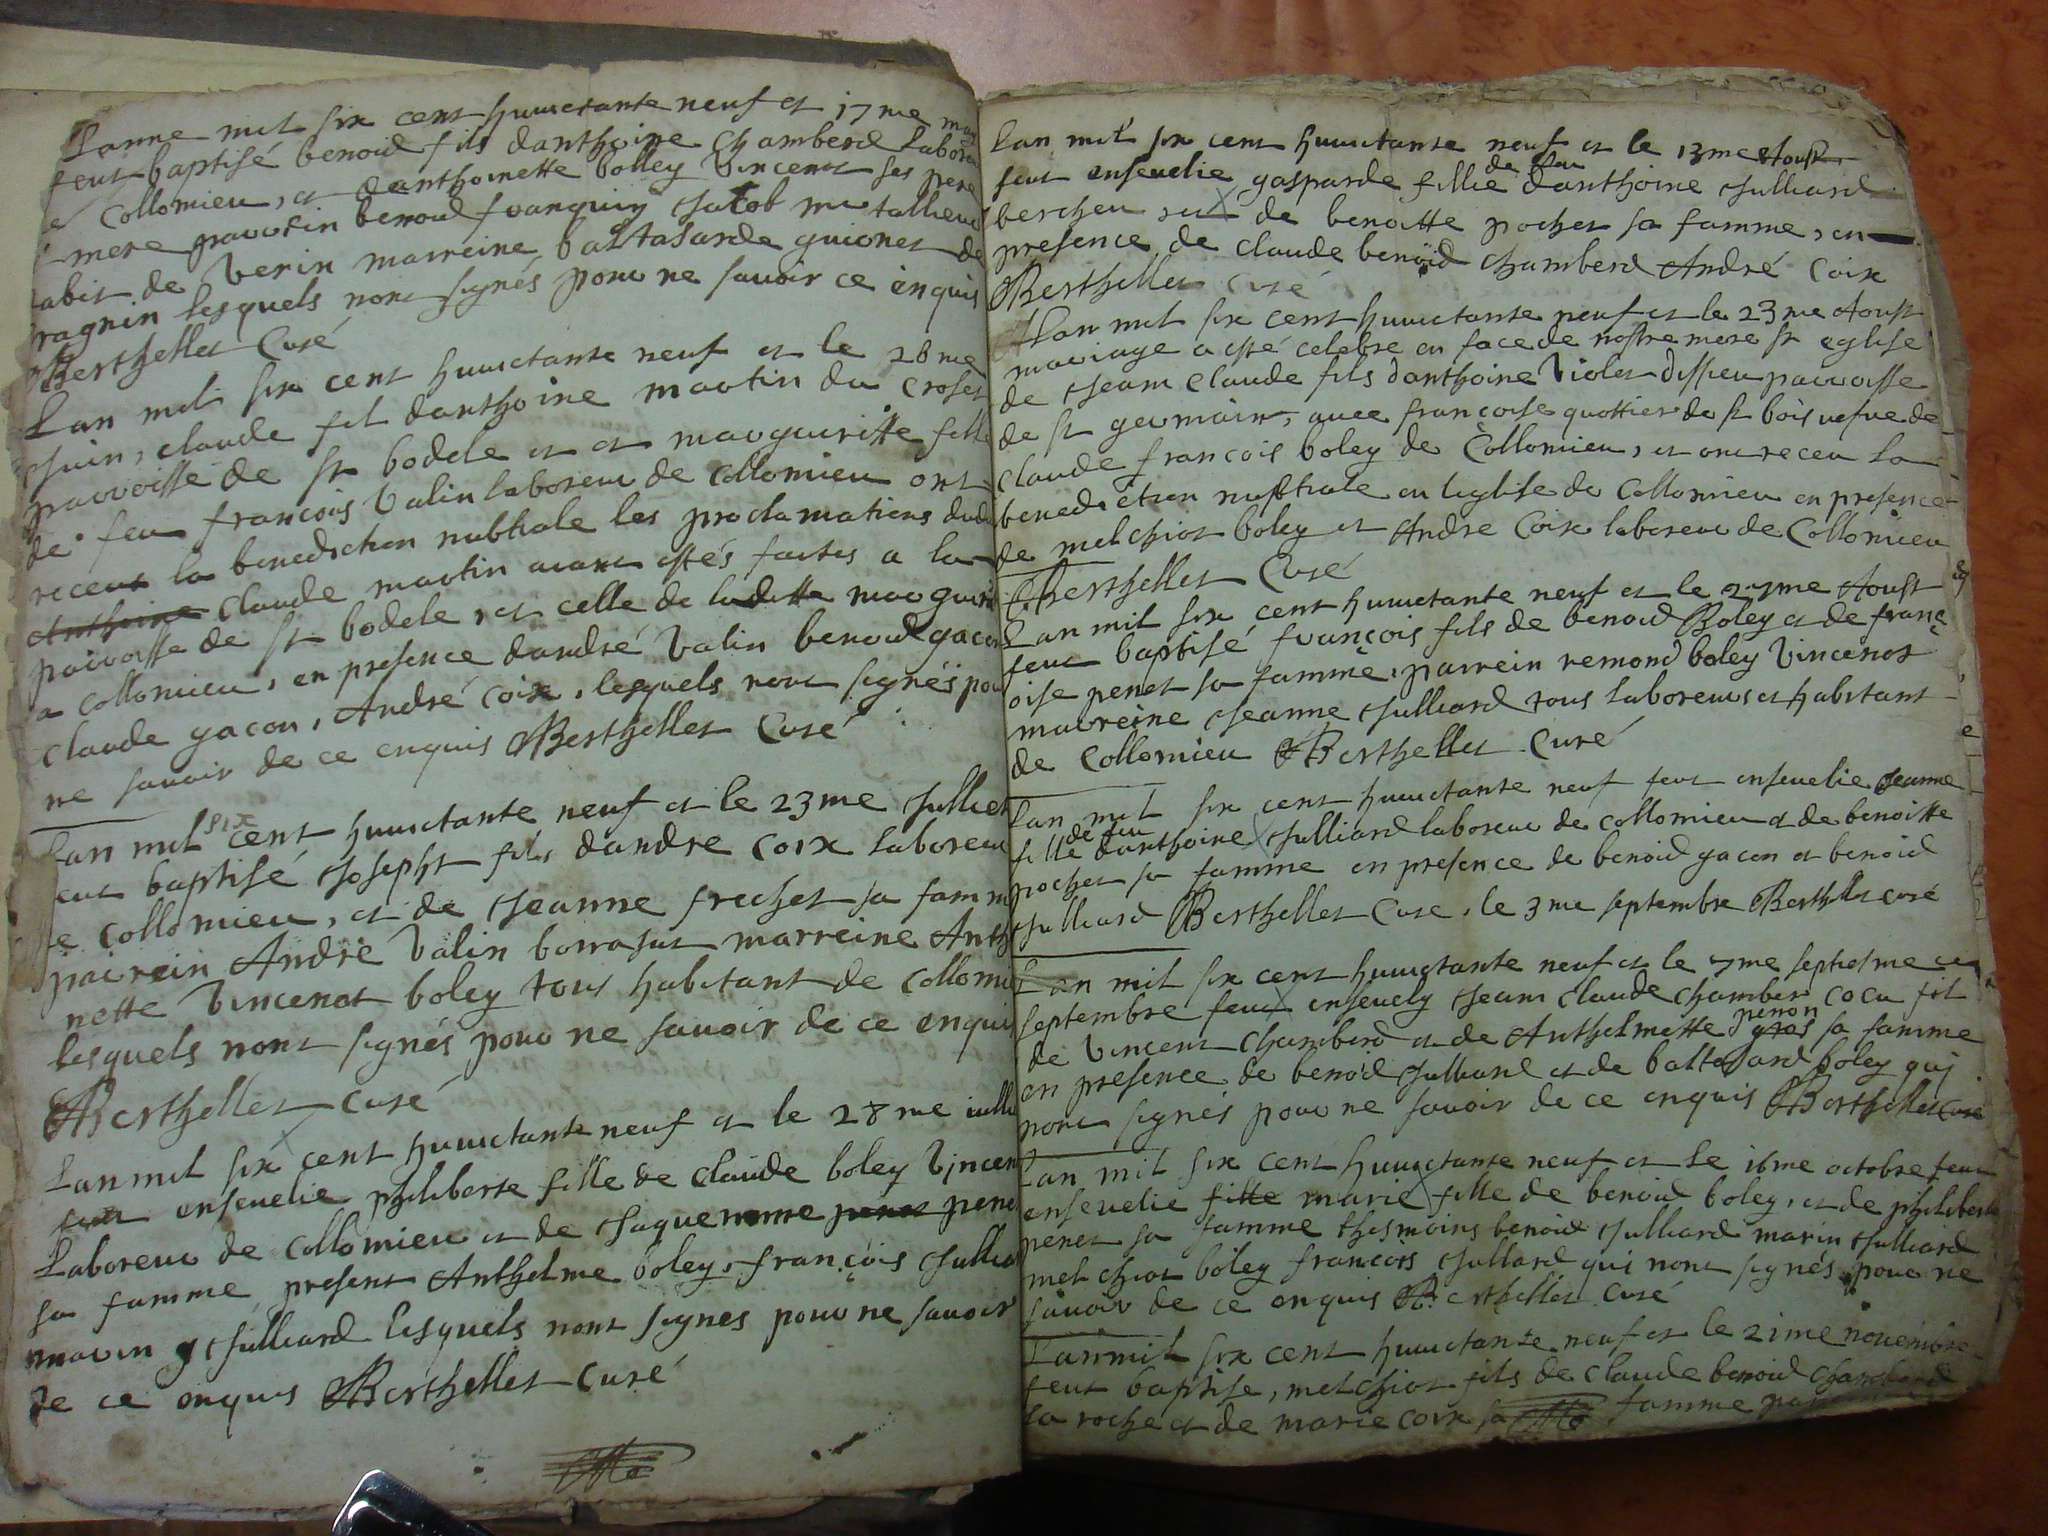 Lanne mil six cent huictante neuf et 17me may
feut baptisé benoid fils danthoine Chamberd Labore
Collomieu, et danthoinette bolley Vincent ses pere
mere parrein benoid franquin Jacob me tallieur
abit de Verin marreine baltasarde guionet de
ragnin lesquels nont signés pour ne savoir ce enquis
Berthellet Curé
Lan mil six cent huictante neuf et le 28me
Juin, claude fil danthoine martin du Croset
parroisse de st bodele et et marguiritte fille
de feu françois Valin laboreur de Collomieu ont
receut la benediction nubtiale les proclamations dud
Anthoine Claude martin aiant estés faites a la
parroisse de st bodele, et celle de laditte marguiri
a Collomieu, en presence dandré Valin benoid gacon
Claude gacon, André Coix, lesquels nont signés pou
ne savoir de ce enquis Berthellet Curé
Lan mil six cent huictante neuf et le 23me Julliet
eut baptisé Josepht fils dandre Coix Laboreur
e Collomieu, et de Jeanne frechet sa famme
pairein André Valin borrasut marreine Anth
nette Vincenot boley tous habitant de Collomi
lesquels nont signés pour ne savoir de ce enquis
Berthellet Curé
Lan mil six cent huictante neuf et le 28me iulli
feut enseuelie philiberte fille de Claude boley Vincen
Laboreur de Collomieu et de Jaquemme penet pene
sa famme, present Anthelme boley, françois Jullia
marin g Julliard Lesquels nont signes pour ne savoir
de ce enquis Berthellet Curé
Lan mil six cent huictante neuf et le 13me Aoust
feut enseuelie gasparde fillie de feu danthoine Julliard
bercheu, et de benoitte pochet sa famme, en
presence de Claude benoid Chamberd André Coix
Berthellet Curé
Lan mil six cent huictante neuf et le 23me Aoust
mariage a esté celebre en face de nostre mere st eglise
de Jeam Claude fils danthoine Violet dissieu parroisse
de st germain, auec françoise quottier de st bois uefue de
Claude françois boley de Collomieu, et ont receu la
benediction nubtiale en leglise de Collomieu en presence
de melchiot boley et Andre Coix laboreur de Collomieu
Berthellet Curé
Lan mil six cent huictante neuf et le 27me Aoust
feut baptisé françois fils de benoid Boley et de franç
oise penet sa famme, parrein remond boley Vincenot
marreine Jeanne Julliard tous laboreurs et habitant
de Collomieu Berthellet Curé
Lan mil six cent huictante neuf feut enseuelie Jeanne
fille de feu danthoine Julliard laboreur de Collomieu et de benoitte
pochet sa famme en presence de benoid gacon et benoid
Julliard Berthellet Cure, le 3me septembre Berthellet curé
Lan mil six cent huictante neuf et le 7me septiesme
septembre feut enseuely Jeam Claude Chamber cocu fil
de Vincent Chamberd et de Anthelmette penon gros sa famme
en presence de benoid Julliard et de baltasard boley qui
nont signés pour ne savoir de ce enquis Berthellet Curé
Lan mil six cent huictante neuf et le 16me octobre feut
enseuelie fille marie fille de benoid boley, et de philiberte
penet sa famme thesmoins benoid Julliard marin Julliard
melchiot boley francois Julliard qui nont signés pour ne
savoir de ce enquis Berthellet Curé
Lan mil six cent huictante neuf et le 21me nouembre
feut baptise, melchiot fils de Claude benoid Chamberd
la roche et de marie Coix sa famme